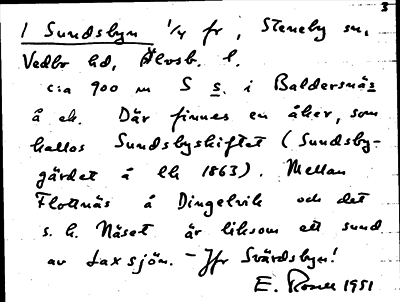 3
1 Sundsbyn 1/4 fr, Steneby sn,
Vedbo hd, Älvsb. l.
c:a 900 m S s. i Baldersnäs
å ek. Där finnes en åker, som
kallas Sundsbyskiftet (Sundsby-
gärdet å lk 1863). Mellan
Flottnäs å Dingelvik och det
s. k. Näset är liksom ett sund
av Laxsjön. – Jfr Svärdsbyn!
E. Rosell 1951